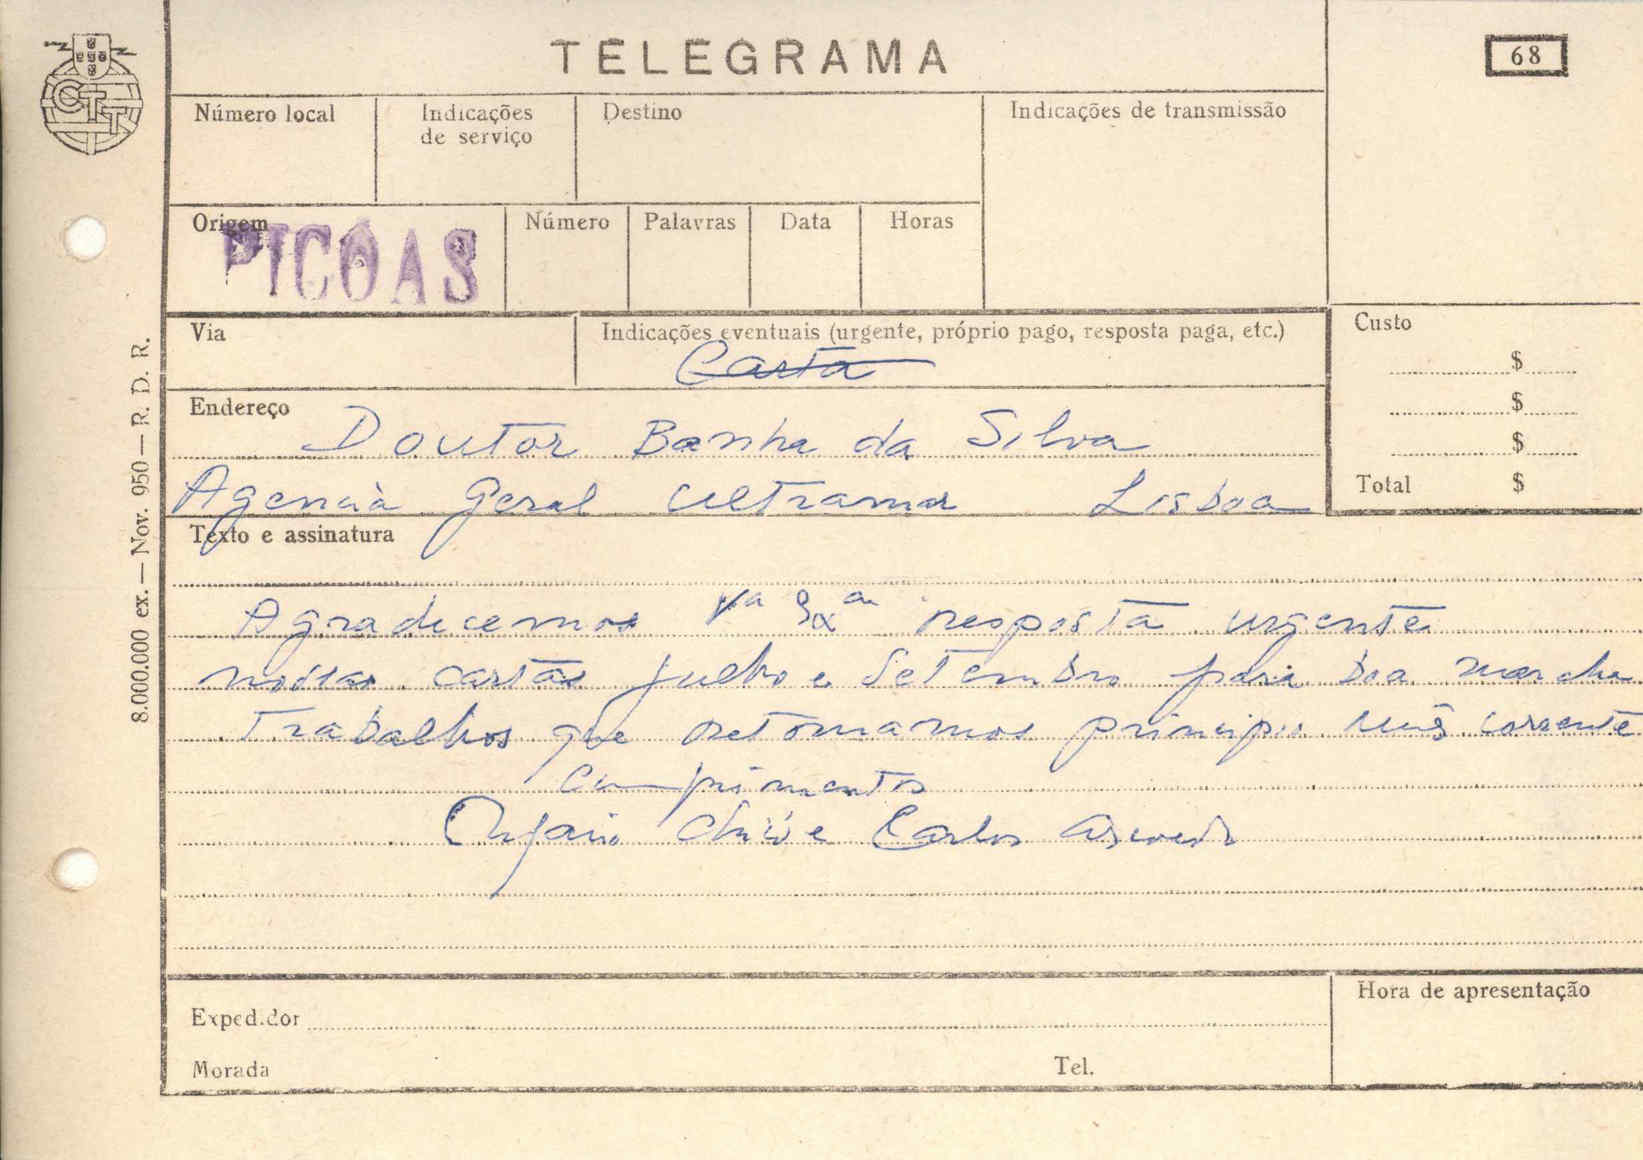 TELEGRAMA
68
CTT
Número local
Indicações de serviço
Destino
Indicações de transmissão
Origem
PICÔAS
Número
Palavras
Data
Horas
Via
Indicações eventuais (urgente, próprio pago, resposta paga, etc.)
Carta
Custo
$
$
$
Total $
Endereço
Doutor Banha da Silva
Agencia Geral Ultramar Lisboa
Texto e assinatura
Agradecemos Vª Exª resposta urgente
nossas cartas julho e Setembro para boa marcha
trabalhos que retomamos principio mês corrente
Cumprimentos
Carlos Azevedo
Expedidor
Morada
Tel.
Hora de apresentação
8.000.000 ex. — Nov. 950 — R. D. R.